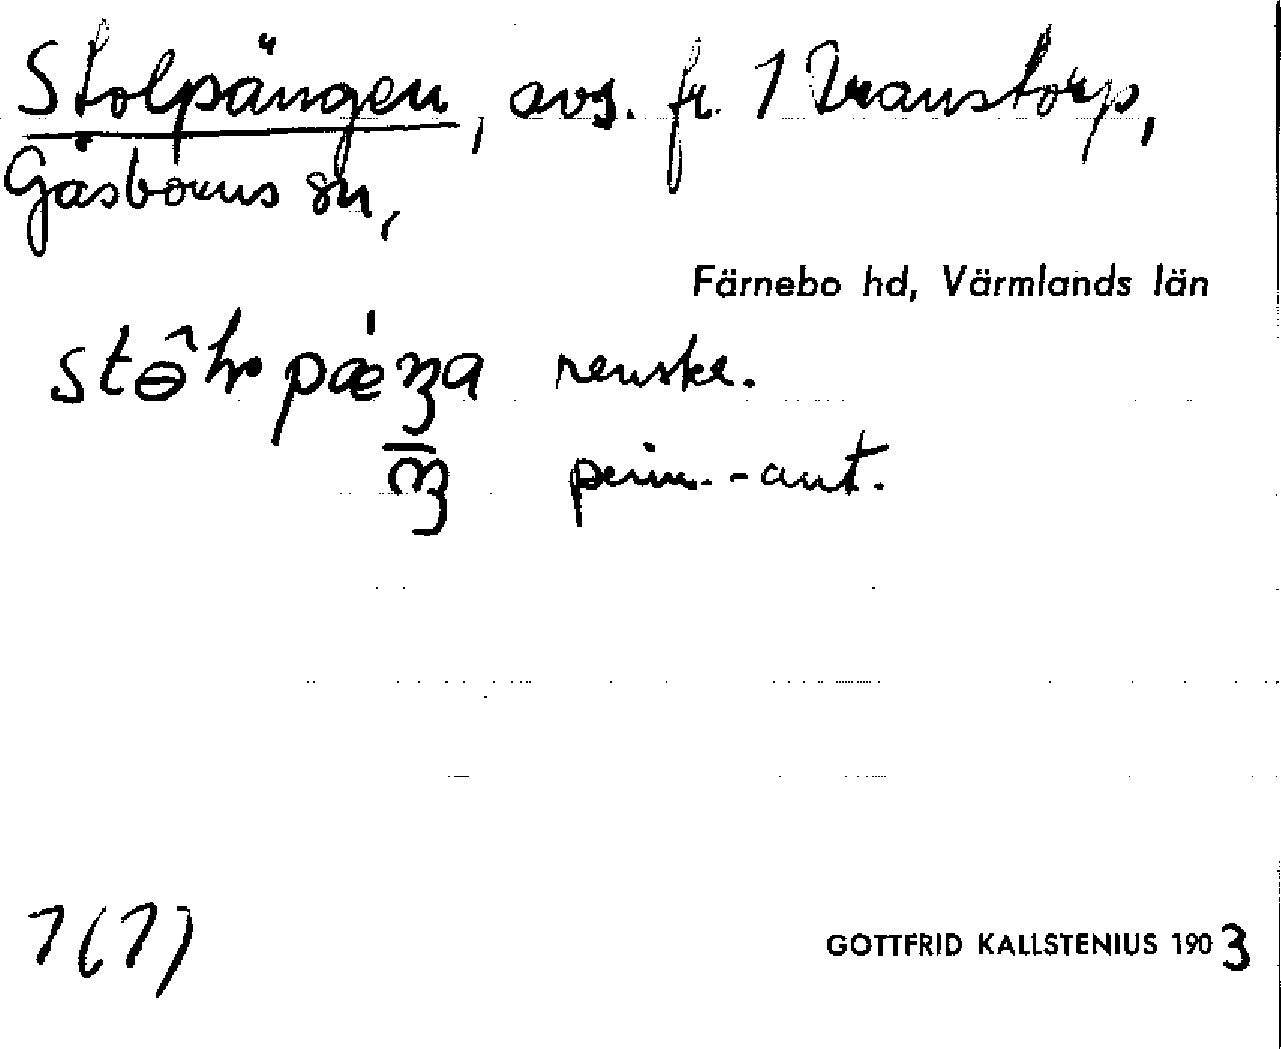 Stolpängen, avs. fr. 1 Transtorp,
Gåsborns sn,
Färnebo hd, Värmlands län
renskr.
perm.-ant.
1(1)
GOTTFRID KALLSTENIUS 1903